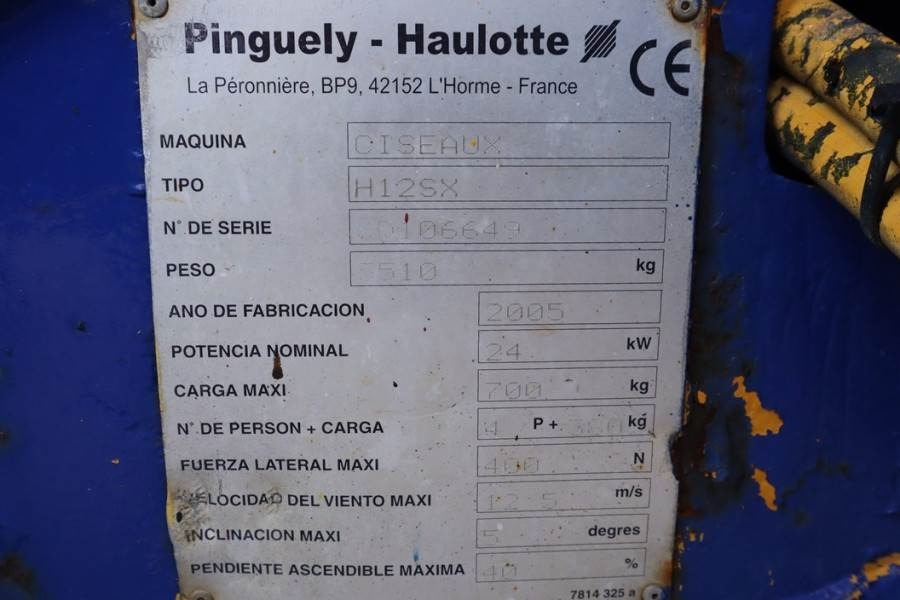 Pinguely - Haulotte CE
La Péronnière, BP9, 42152 L'Horme - France
MAQUINA CISEAUX
TIPO H12SX
N° DE SERIE
PESO kg
ANO DE FABRICACION 2005
POTENCIA NOMINAL 24 kW
CARGA MAXI 700 kg
N° DE PERSON + CARGA 4 P + kg
FUERZA LATERAL MAXI 400 N
VELOCIDAD DEL VIENTO MAXI 12.5 m/s
INCLINACION MAXI 5 degres
PENDIENTE ASCENDIBLE MAXIMA 40 %
7814 325 a